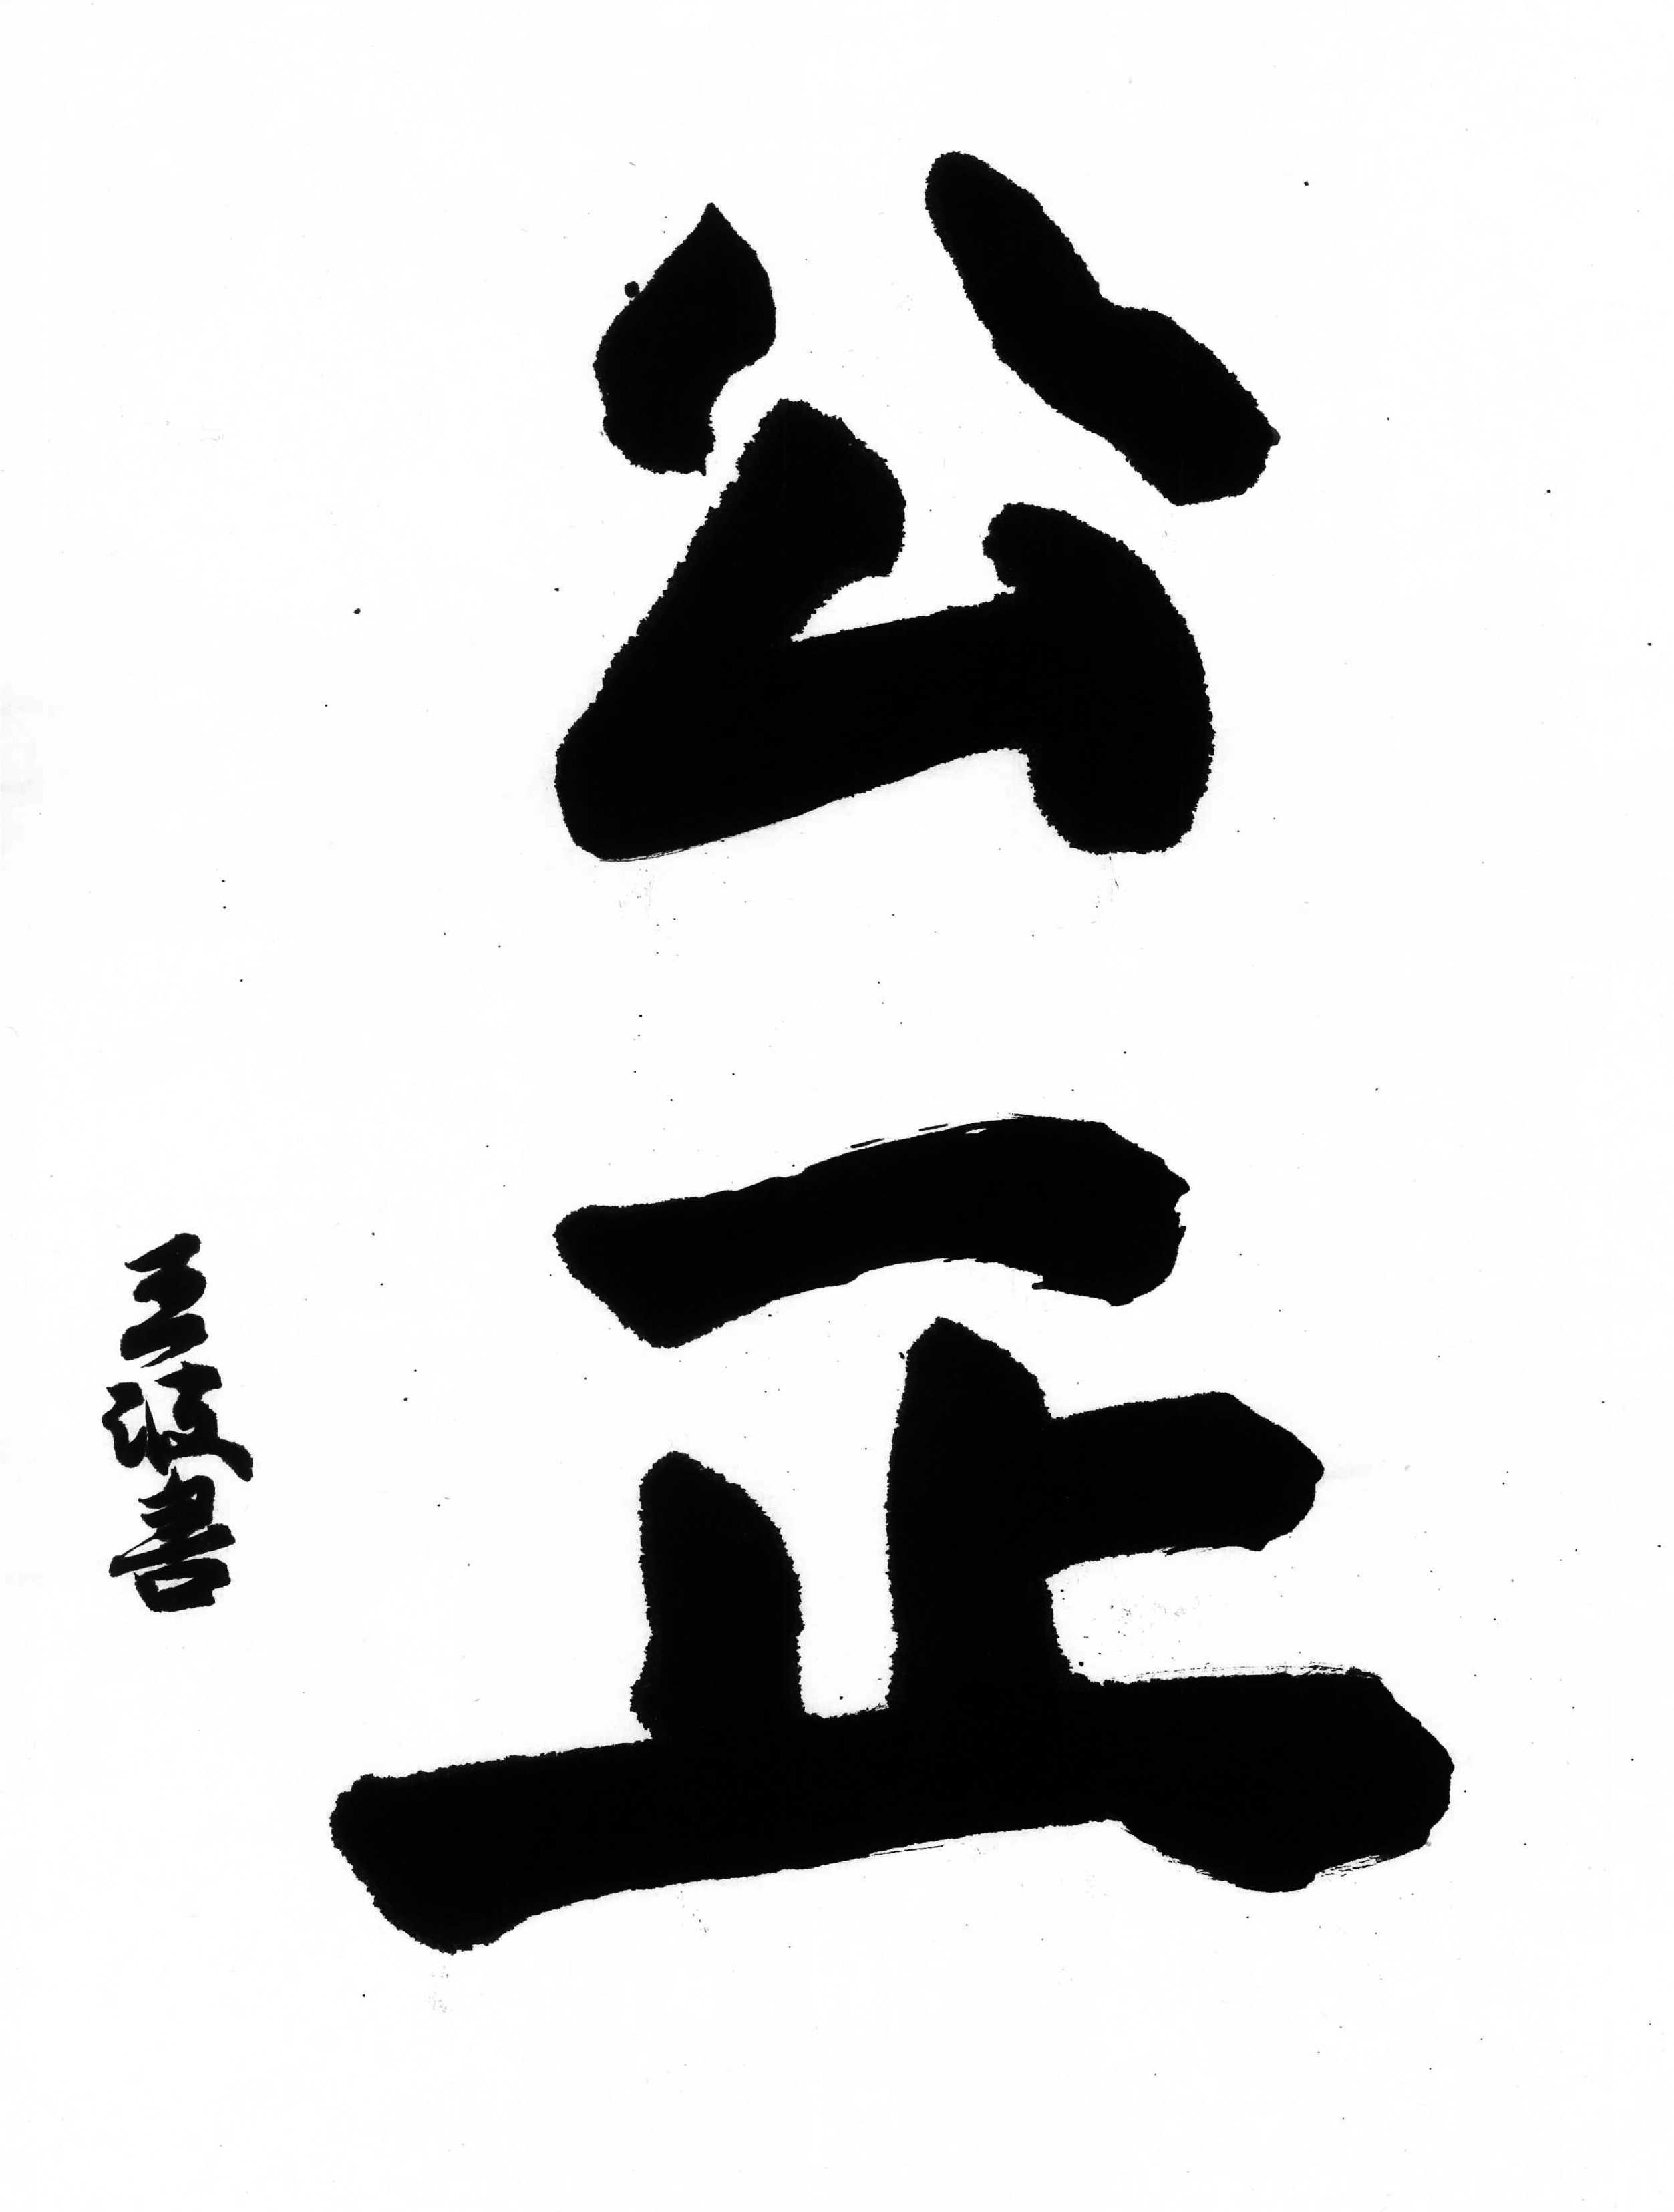 公正
王波書